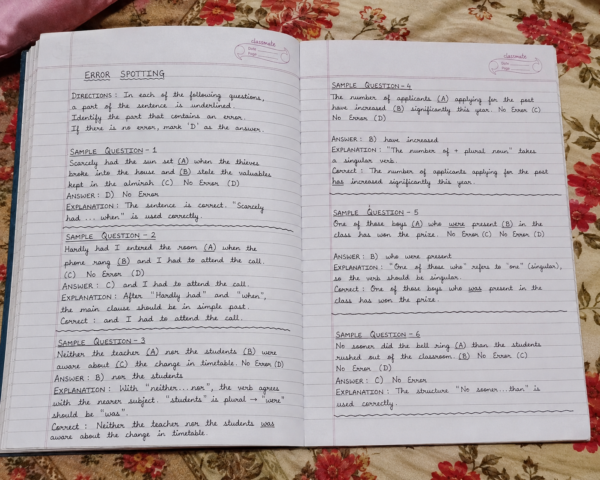 classmate
Date
Page
ERROR SPOTTING
DIRECTIONS : In each of the following questions,
a part of the sentence is underlined.
Identify the part that contains an error.
If there is no error, mark 'D' as the answer.
SAMPLE QUESTION - 1
Scarcely had the sun set (A) when the thieves
broke into the house and (B) stole the valuables
kept in the almirah (C) No Error (D)
ANSWER : D) No Error
EXPLANATION : The sentence is correct. "Scarcely
had ... when" is used correctly.
SAMPLE QUESTION - 2
Hardly had I entered the room (A) when the
phone rang (B) and I had to attend the call.
(C) No Error (D)
ANSWER : C) and I had to attend the call.
EXPLANATION : After "Hardly had" and "when",
the main clause should be in simple past.
Correct : and I had to attend the call.
SAMPLE QUESTION - 3
Neither the teacher (A) nor the students (B) were
aware about (C) the change in timetable. No Error (D)
ANSWER : B) nor the students
EXPLANATION : With "neither... nor", the verb agrees
with the nearer subject. "students" is plural → "were"
should be "was".
Correct : Neither the teacher nor the students was
aware about the change in timetable.
classmate
Date
Page
SAMPLE QUESTION - 4
The number of applicants (A) applying for the post
have increased (B) significantly this year. No Error (C)
No Error (D)
ANSWER : B) have increased
EXPLANATION : "The number of + plural noun" takes
a singular verb.
Correct : The number of applicants applying for the post
has increased significantly this year.
SAMPLE QUESTION - 5
One of those boys (A) who were present (B) in the
class has won the prize. No Error (C) No Error (D)
ANSWER : B) who were present
EXPLANATION : "One of those who" refers to "one" (singular),
so the verb should be singular.
Correct : One of those boys who was present in the
class has won the prize.
SAMPLE QUESTION - 6
No sooner did the bell ring (A) than the students
rushed out of the classroom. (B) No Error (C)
No Error (D)
ANSWER : C) No Error
EXPLANATION : The structure "No sooner... than" is
used correctly.